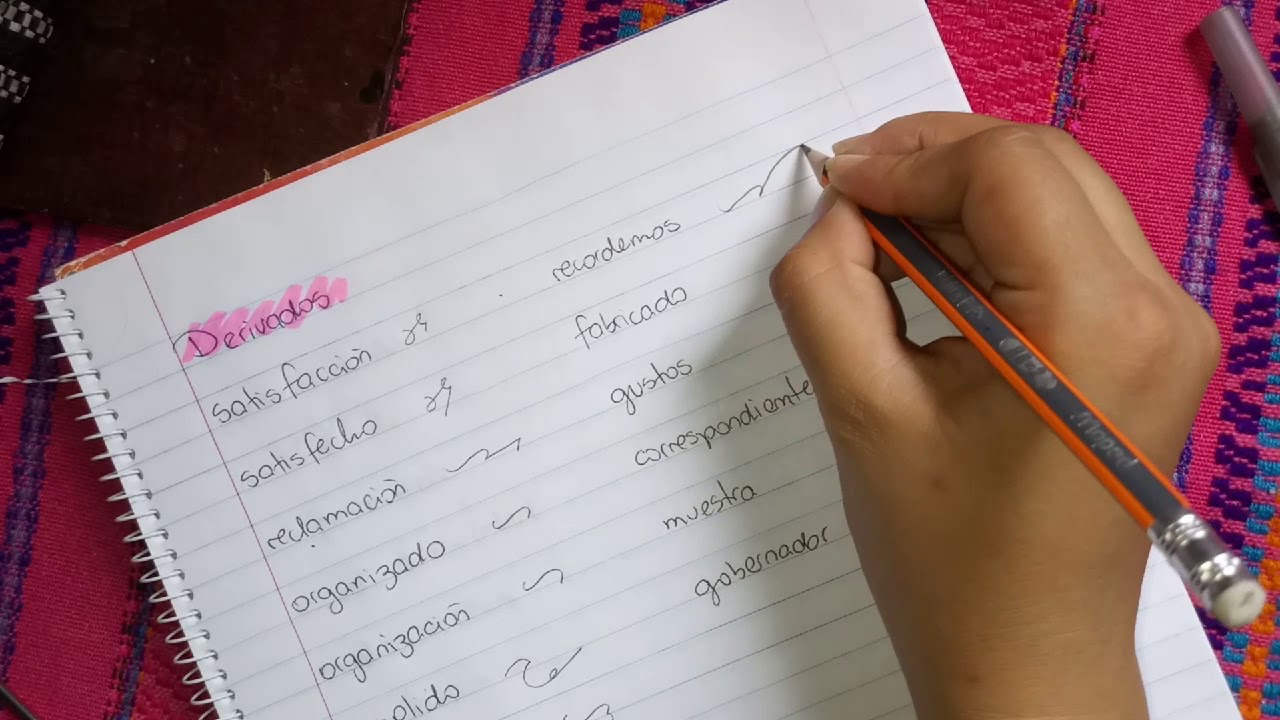 Derivados
satisfacción
satisfecho
reclamación
organizado
organización
recordemos
fabricado
gustos
correspondiente
muestra
gobernador
Maped